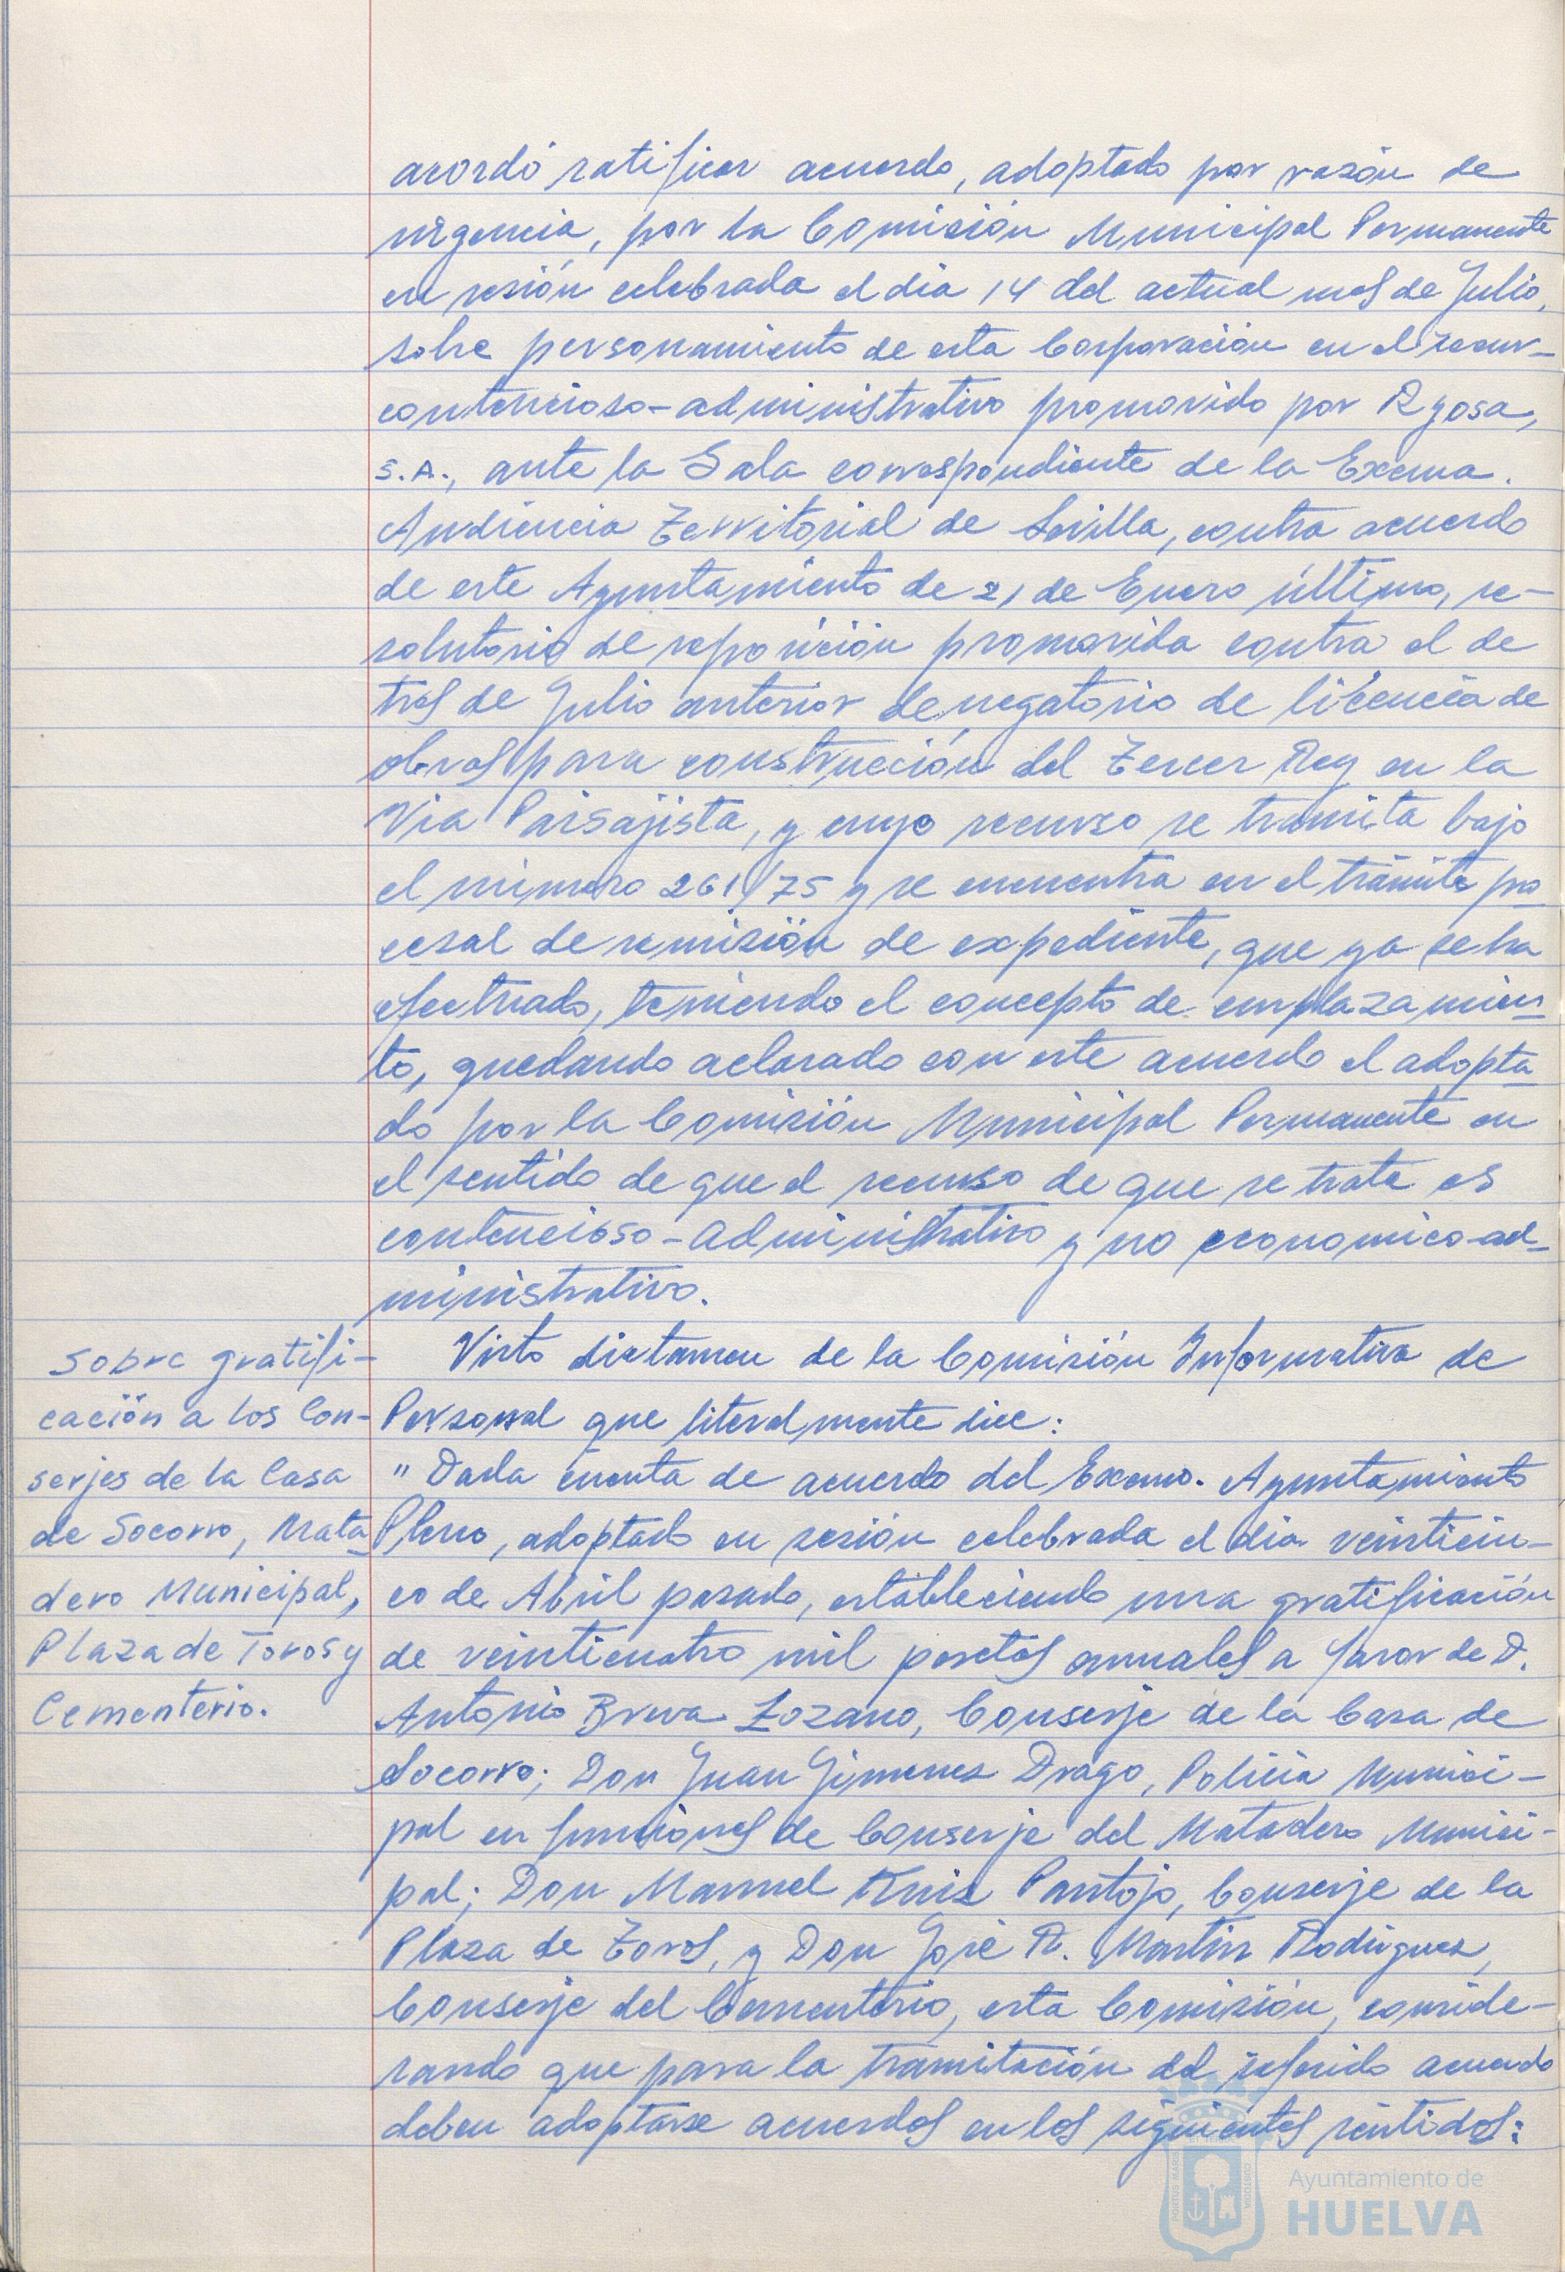 acordó ratificar acuerdo, adoptado por razón de
urgencia, por la Comisión Municipal Permanente
en sesión celebrada el dia 14 del actual mes de Julio,
sobre personamiento de esta Corporación en el recur-
contencioso-administrativo promovido por Ryosa,
S.A., ante la Sala correspondiente de la Excma.
Audiencia Territorial de Sevilla, contra acuerdo
de este Ayuntamiento de 21 de Enero último, re-
solutorio de reposición promovida contra el de
tres de Julio anterior denegatorio de licencia de
obras para construcción del Tercer Rey en la
Via Paisajista, y cuyo recurso se tramita bajo
el número 261/75 y se encuentra en el trámite pro
cesal de remisión de expediente, que ya se ha
efectuado, teniendo el concepto de emplazamien-
to, quedando aclarado con este acuerdo el adopta-
do por la Comisión Municipal Permanente en
el sentido de que el recurso de que se trata es
contencioso-administrativo y no economico-ad-
ministrativo.
Sobre gratifi-
cación a los Con-
serjes de la Casa
de Socorro, Mata-
dero Municipal,
Plaza de Toros y
Cementerio.
Visto dictamen de la Comisión Informativa de
Personal que literalmente dice:
"Dada cuenta de acuerdo del Excmo. Ayuntamiento
Pleno, adoptado en sesión celebrada el dia veinticin-
co de Abril pasado, estableciendo una gratificación
de veinticuatro mil pesetas anuales a favor de D.
Antonio Brva Lozano, Conserje de la Casa de
Socorro; Don Juan Gimenez Drago, Policia Munici-
pal en funciones de Conserje del Matadero Munici-
pal; Don Manuel Ruiz Pantoja, Conserje de la
Plaza de Toros, y Don José R. Martin Rodriguez,
Conserje del Cementerio, esta Comisión, conside-
rando que para la tramitación del referido acuerdo
deben adoptarse acuerdos en los siguientes sentidos:
Ayuntamiento de
HUELVA